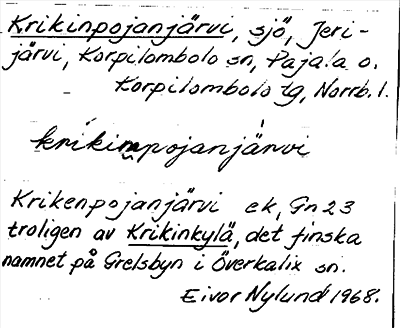 Krikinpojanjärvi, sjö, Jeri-
järvi, Korpilombolo sn, Pajala o.
Korpilombolo tg, Norrb. l.
krikinpojanjärvi
Krikenpojanjärvi ek, Gn 23
troligen av Krikinkylä, det finska
namnet på Grelsbyn i Överkalix sn.
Eivor Nylund 1968.